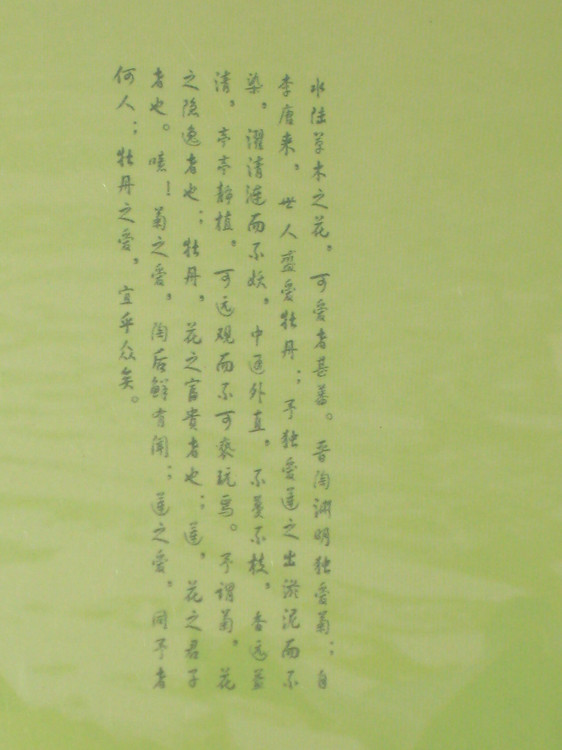 水陆草木之花，可爱者甚蕃。晋陶渊明独爱菊；自
李唐来，世人盛爱牡丹；予独爱莲之出淤泥而不
染，濯清涟而不妖，中通外直，不蔓不枝，香远益
清，亭亭静植，可远观而不可亵玩焉。予谓菊，花
之隐逸者也；牡丹，花之富贵者也；莲，花之君子
者也。噫！菊之爱，陶后鲜有闻；莲之爱，同予者
何人；牡丹之爱，宜乎众矣。